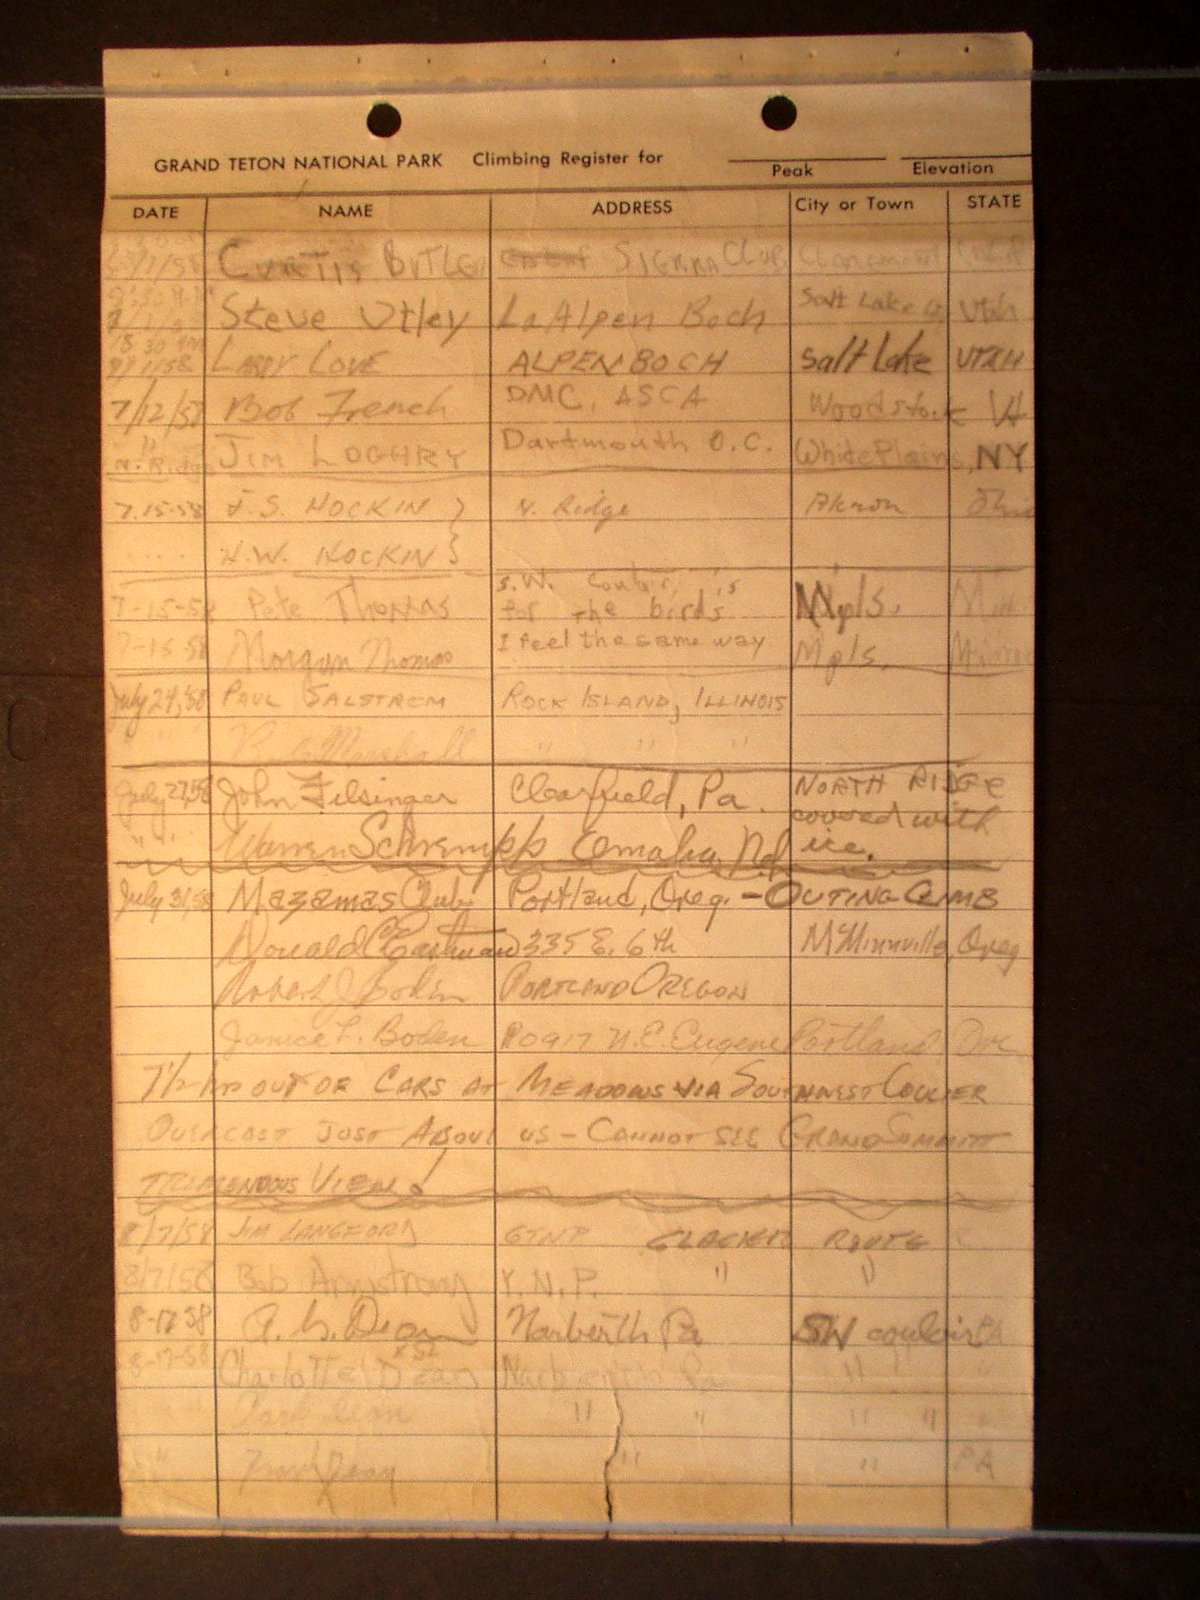 GRAND TETON NATIONAL PARK Climbing Register for
Peak Elevation
DATE NAME ADDRESS City or Town STATE
CURTIS BUTLER SIERRA CLUB
Steve Utley La Alpen Boch Salt Lake Utah
LARRY LOVE ALPENBOCH Salt Lake UTAH
7/12/58 Bob French DMC, ASCA Woodstock Vt
" N. Ridge JIM LOGHRY Dartmouth O.C. White Plains, NY
7-15-58 F. S. HOCKIN } N. Ridge Akron Ohio
" " " H.W. HOCKIN }
7-15-58 Pete Thomas S.W. Couloir is for the birds Mpls. Minn
7-15-58 Morgan Thomas I feel the same way. Mpls. Minn
July 24, '58 PAUL SALSTROM ROCK ISLAND, ILLINOIS
" " " Marshall " " "
July 27, 58 John Filsinger Clearfield, Pa. NORTH RIDGE
" " " Warren Schrempp Omaha Neb covered with ice.
July 31, 58 Mazamas Club Portland, Oreg. - OUTING CLIMB
Donald C Eastman 335 E. 6th McMinnville, Oreg
Robert J Boden PORTLAND OREGON
Janice L. Boden N.E. Eugene Portland Ore
7 1/2 hrs OUT OF CARS AT MEADOWS VIA SOUTHWEST COULIER
OVERCAST JUST ABOVE US - CANNOT SEE GRAND SUMMITT
TREMENDOUS VIEW!
8/7/58 JIM LANGFORD GTNP GLACIER ROUTE
8/7/58 Bob Armstrong Y.N.P. " "
8-17-58 A. G. Dean Narberth Pa SW couloir PA
8-17-58 Charlotte Dean Narberth Pa " " "
" " Dean " " " " "
" " Frank Dean " " PA